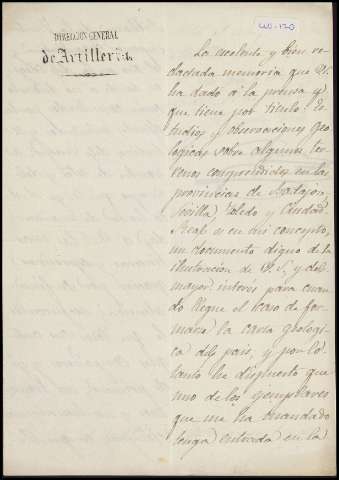 DIRECCION GENERAL
de Artillería.
La excelente y bien re-
dactada memoria que V.S.
ha dado á la prensa y
que tiene por titulo: Es-
tudios y observaciones Geo-
lógicas sobre algunos ter-
renos comprendidos en las
provincias de Badajoz,
Sevilla, Toledo y Ciudad
Real es en mi concepto,
un documento digno de la
ilustracion de V.S. y del
mayor interés para cuan-
do llegue el caso de for-
marse la carta geologi-
ca del pais, y por lo
tanto he dispuesto que
uno de los ejemplares
que me ha mandado
tenga entrada en la